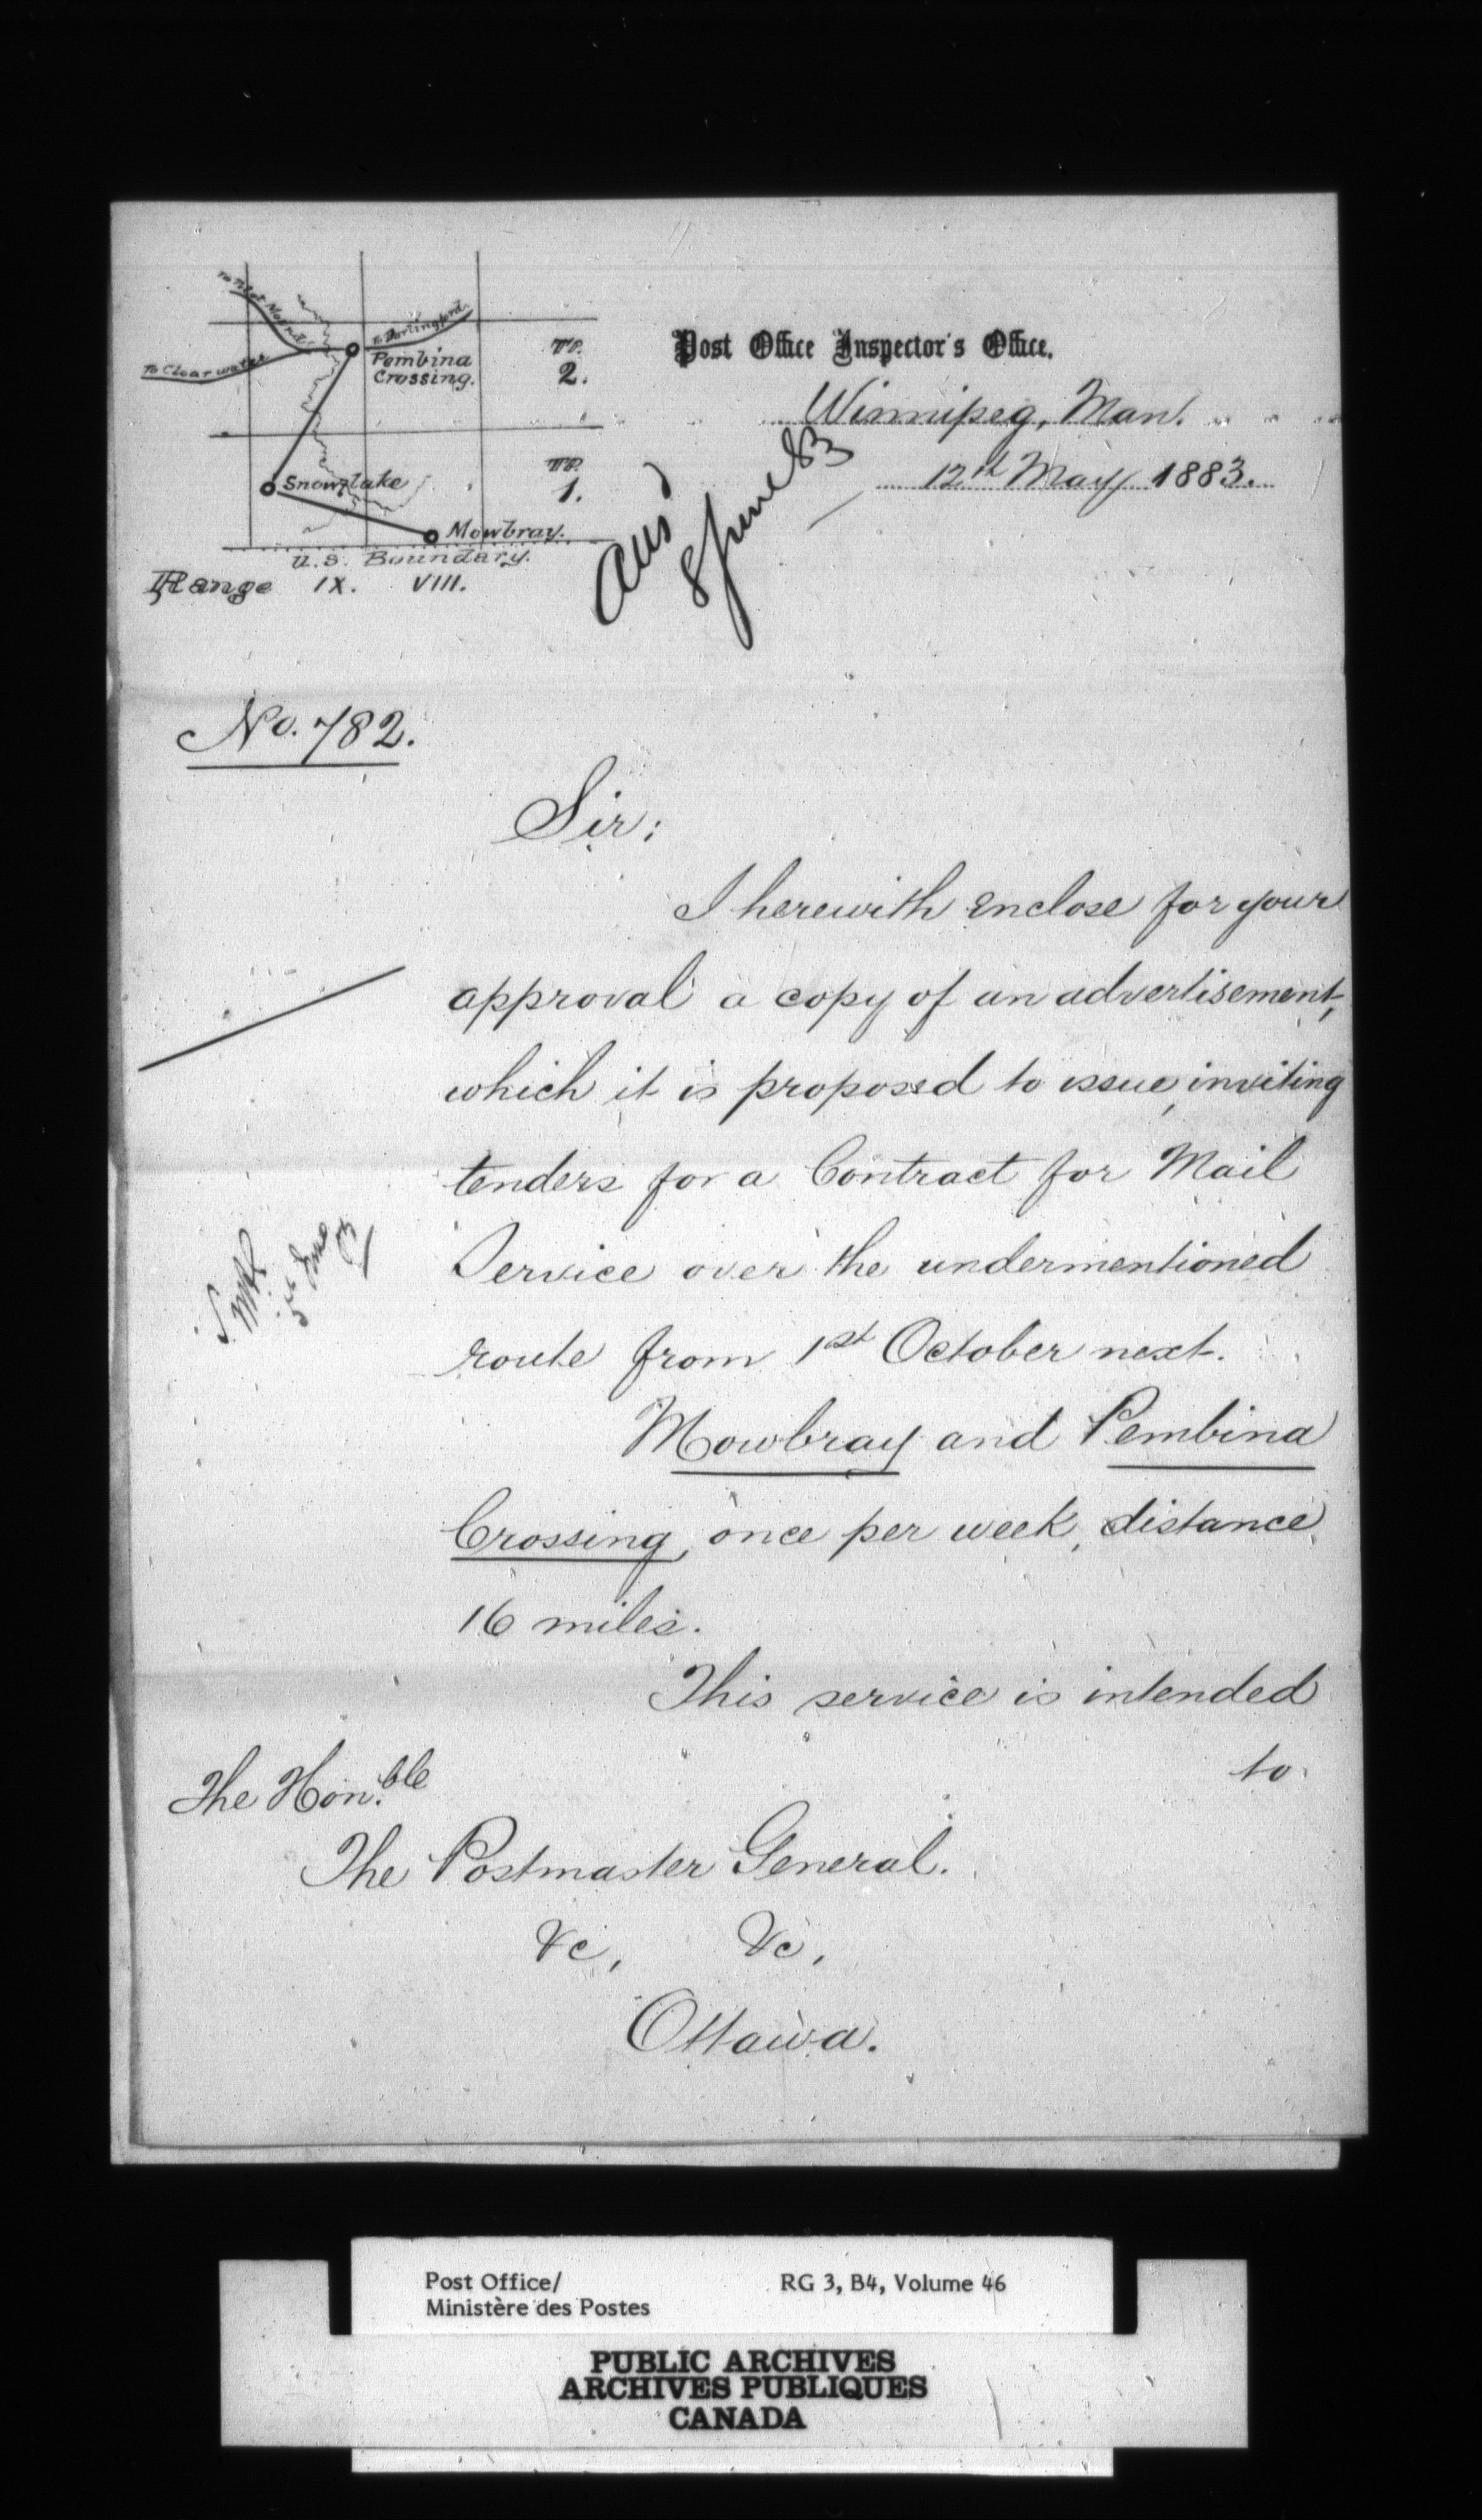 To Pilot Mound.
To Darlingford.
To Clearwater
Pembina
Crossing.
TP.
2.
Snowflake
TP.
1.
Mowbray.
U.S. Boundary.
Range IX. VIII.
Post Office Inspector's Office.
Winnipeg, Man.
12th May 1883.
Ans'd
8 June 83
No. 782.
Sir;
I herewith enclose for your
approval a copy of an advertisement,
which it is proposed to issue, inviting
tenders for a Contract for Mail
Service over the undermentioned
route from 1st October next.
Mowbray and Pembina
Crossing, once per week, distance
16 miles.
This service is intended
to
The Hon.ble
The Postmaster General.
&c, &c,
Ottawa.
Post Office/
Ministère des Postes
RG 3, B4, Volume 46
PUBLIC ARCHIVES
ARCHIVES PUBLIQUES
CANADA